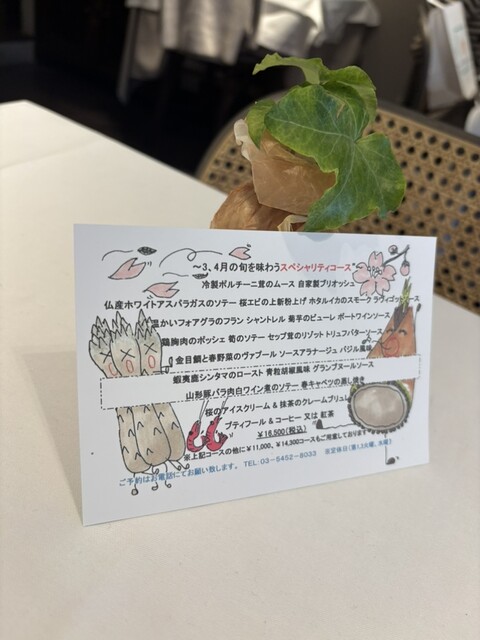 ～3、4月の旬を味わうスペシャリティコース～
冷製ポルチーニ茸のムース 自家製ブリオッシュ
仏産ホワイトアスパラガスのソテー 桜エビの上新粉上げ ホタルイカのスモーク ラヴィゴットソース
温かいフォアグラのフラン シャントレル 菊芋のピューレ ポートワインソース
鶏胸肉のポッシェ 筍のソテー セップ茸のリゾット トリュフバターソース
金目鯛と春野菜のヴァプール ソースアラナージュ バジル風味
蝦夷鹿シンタマのロースト 青粒胡椒風味 グランブヌールソース
山形豚バラ肉白ワイン煮のソテー 春キャベツの蒸し焼き
桜のアイスクリーム & 抹茶のクレームブリュレ
プティフール & コーヒー 又は 紅茶
￥16,500(税込)
※上記コースの他に￥11,000、￥14,300コースもご用意しております
ご予約はお電話にてお願い致します。 TEL:03-5452-8033